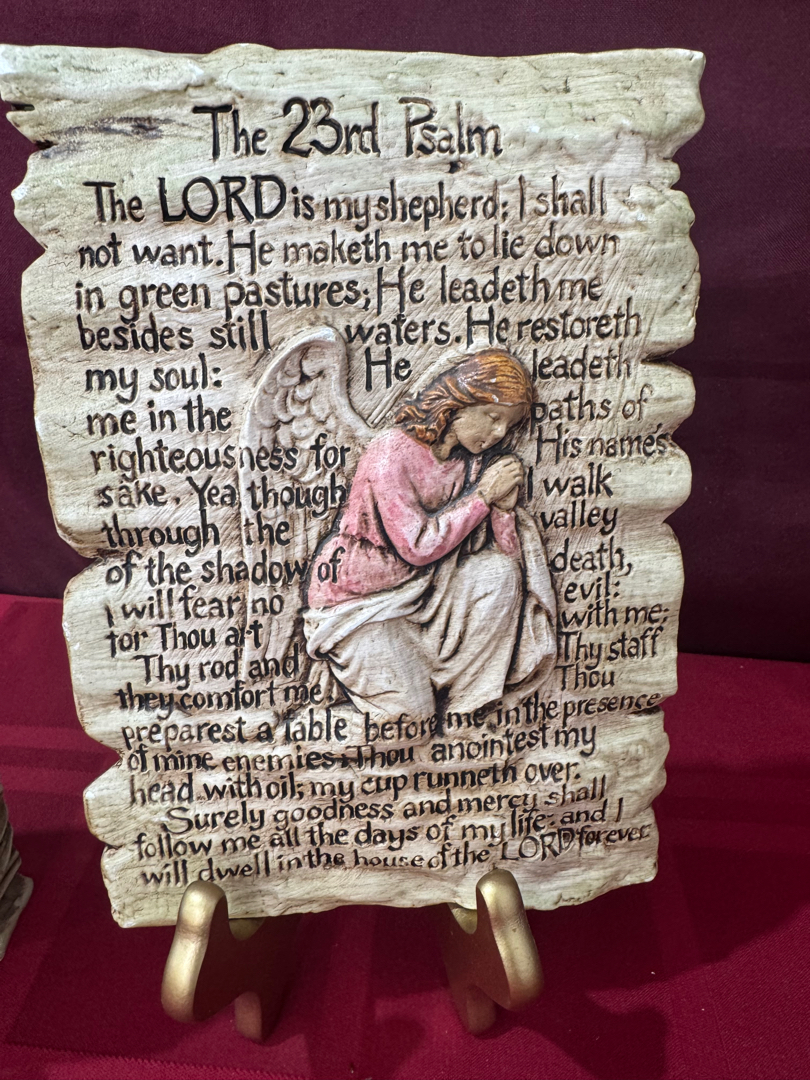 The 23rd Psalm
The LORD is my shepherd; I shall
not want. He maketh me to lie down
in green pastures; He leadeth me
besides still waters. He restoreth
my soul: He leadeth
me in the paths of
righteousness for His name's
sake. Yea though I walk
through the valley
of the shadow of death,
I will fear no evil:
for Thou art with me;
Thy rod and Thy staff
they comfort me Thou
preparest a table before me in the presence
of mine enemies: Thou anointest my
head with oil; my cup runneth over.
Surely goodness and mercy shall
follow me all the days of my life: and I
will dwell in the house of the LORD forever.